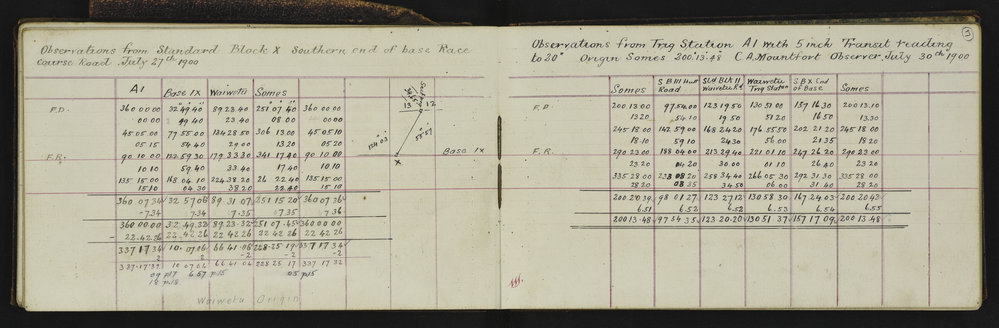 Observations from Standard Block X Southern end of base Race
Course Road July 27th 1900
A1 Base IX Waiwetu Somes
F.D. 360 00 00 32 49 40 89 23 40 251 07 40 360 00 00
00 00 49 40 23 40 08 00 00 00
45 05 00 77 55 00 134 28 50 306 13 00 45 05 10
05 15 54 40 29 00 13 20 05 20
F.R. 90 10 00 122 59 30 179 33 30 341 17 40 90 10 00
10 10 59 40 33 40 17 40 10 10
135 15 00 168 04 10 224 38 20 26 22 40 135 15 00
15 10 04 30 38 20 22 40 15 10
360 07 34 32 57 06 89 31 07 251 15 20 360 07 36
-7.34 7.34 7.35 07.35 7 36
360 00 00 32 49 32 89 23 32 251 07 45 360 00 00
- 22.42 26 22 42 26 22 42 26 22 42 26 22 42 26
337 17 34 10 07 06 66 41 06 228 25 19 337 17 34
2 2 -2 -2
337 17 32 10 07 06 66 41 04 228 25 17 337 17 32
09 p17 6.57 p.15 05 p15
18 p.18
Waiwetu Origin
13 12
154 03
55 57
X
Base IX
3
Observations from Trig Station A1 with 5 inch Transit reading
to 20" Origin Somes 200° 13' 48 C.A. Mountfort Observer, July 30th 1900
Somes S B III Hutt Road Std Blk II Waiwetu Rd Waiwetu Trig Station S.B X End of Base Somes
F.D. 200 13 00 97 54 00 123 19 50 130 51 00 157 16 30 200 13 10
13 20 54 10 19 50 51 20 16 50 13.30
245 18 00 142 59 00 168 24 20 176 55 50 202 21 20 245 18 00
18.10 59 10 24 30 56 00 21 35 18 20
F.R. 290 23 00 188 04 00 213 29 40 221 01 10 247 26 20 290 23 00
23 20 04 20 30 00 01 10 26 40 23 20
335 28 00 233 08 20 258 34 40 266 05 30 292 31 30 335 28 00
28 20 08 35 34 50 06 00 31 40 28 20
200 20 39 98 01 27 123 27 12 130 58 30 167 24 03 200 20 43
6.51 6.52 6.52 6.53 6.54 6.55
200 13 48 97 54 35 123 20 20 130 51 37 157 17 09 200 13 48